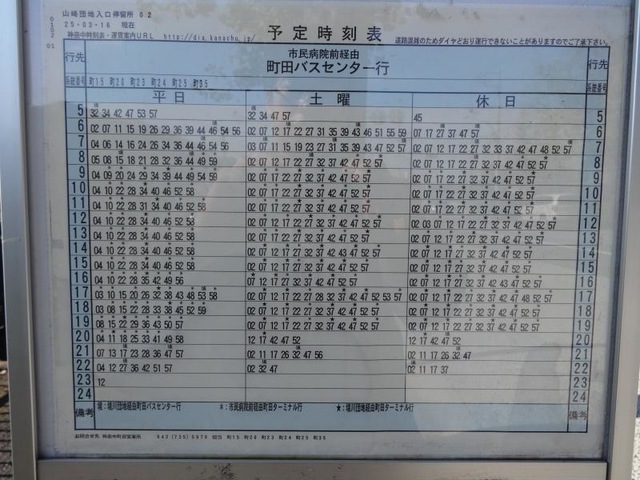 山崎団地入口停留所 02
25-03-16 現在
神奈中時刻表・運賃案内URL http://dia.kanachu.jp/
予定時刻表
道路混雑のためダイヤどおり運行できないことがありますのでご了承下さい。
行先 市民病院前経由 行先
町田バスセンター行
系統番号 町15 町20 町23 町24 町25 町35 系統番号
平日 土曜 休日
5 32 34 42 47 53 57 32 34 47 57 45 5
6 02 07 11 15 19 26 29 36 39 44 46 54 56 02 07 12 17 22 27 31 35 39 43 46 51 55 59 07 17 27 37 47 57 6
7 04 06 14 16 24 26 34 36 44 46 54 56 03 07 11 15 19 23 27 31 35 39 43 47 52 57 02 07 12 17 22 27 32 33 37 42 47 48 52 57 7
8 05 08 15 18 21 28 32 36 44 49 59 02 07 12 17 22 27 32 37 42 47 52 57 02 07 12 17 22 27 32 37 42 47 52 57 8
9 04 09 20 24 29 34 39 44 49 54 59 02 07 17 22 27 32 37 42 47 52 57 02 07 17 22 27 32 37 42 47 52 57 9
10 04 10 22 28 34 40 46 52 58 02 07 17 22 27 32 37 42 47 52 57 02 07 17 22 27 32 37 42 47 52 57 10
11 04 10 22 28 31 34 40 46 52 58 02 07 17 22 27 32 37 42 47 52 57 02 07 12 17 22 27 32 37 42 47 52 57 11
12 04 10 22 28 34 40 46 52 58 02 07 17 22 27 32 37 42 47 52 57 02 03 07 12 17 22 27 32 37 42 47 52 57 12
13 04 10 22 28 34 40 46 52 58 02 07 17 22 27 32 37 42 47 52 57 02 07 12 17 22 27 32 37 42 47 52 57 13
14 04 10 22 28 34 40 46 52 58 02 07 12 17 22 27 32 37 42 43 47 52 57 02 07 12 17 22 27 32 37 42 47 52 57 14
15 04 10 22 28 34 40 46 52 58 02 07 12 17 22 27 32 37 42 47 52 57 02 07 12 17 22 27 32 37 42 47 52 57 15
16 04 10 22 28 35 42 49 56 07 12 17 22 27 32 37 42 47 52 57 02 07 12 17 22 27 32 37 42 47 52 57 16
17 03 10 15 20 26 32 38 43 48 53 58 02 07 12 17 22 27 28 32 37 42 47 52 53 57 02 07 12 17 22 27 32 37 42 47 48 52 57 17
18 03 08 15 22 28 33 38 45 52 59 02 07 12 17 22 27 32 37 42 47 52 57 02 07 12 17 22 27 32 37 42 47 52 57 18
19 08 15 22 29 36 43 50 57 02 07 12 17 22 27 32 37 42 47 52 57 02 07 12 17 22 27 32 37 42 47 52 57 19
20 04 11 18 25 33 41 49 58 12 17 42 47 52 12 17 42 47 52 20
21 07 13 17 23 28 36 47 57 02 11 17 26 32 47 56 02 11 17 26 32 47 21
22 04 12 27 36 42 51 57 02 32 47 02 11 17 37 22
23 12 23
24 24
備考 境:境川団地経由町田バスセンター行 *:市民病院前経由町田ターミナル行 ★:境川団地経由町田ターミナル行 備考
お問合せ先 神奈中町田営業所 042(735)5970 担当 町15 町20 町23 町24 町25 町35